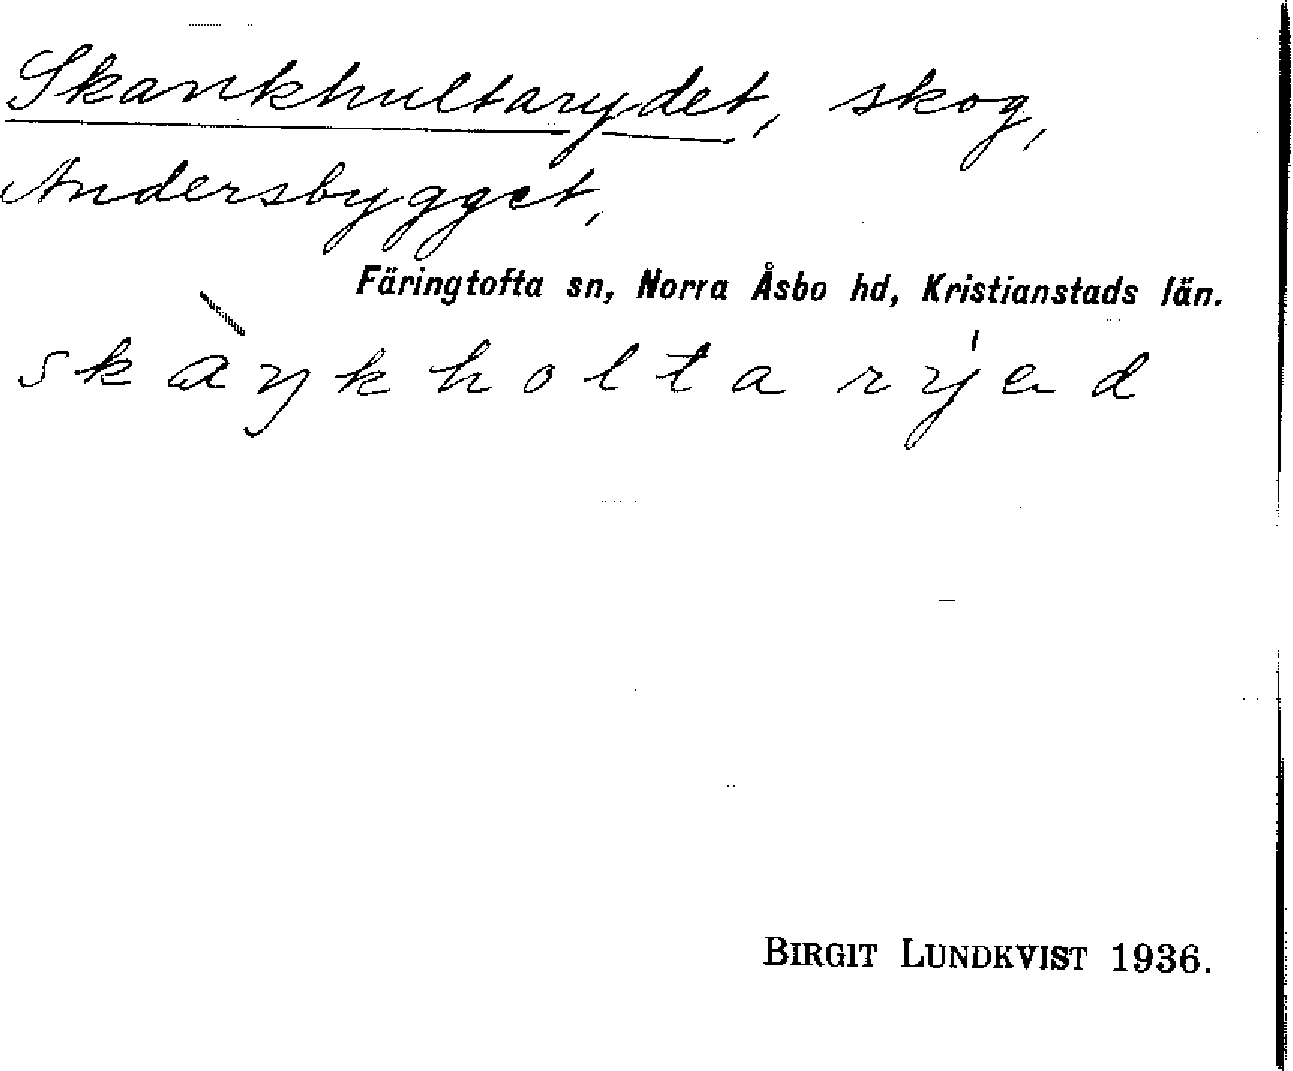 Skankhultarydet, skog,
Andersbygget,
Färingtofta sn, Norra Åsbo hd, Kristianstads län.
skàŋkholtarýəd
BIRGIT LUNDKVIST 1936.